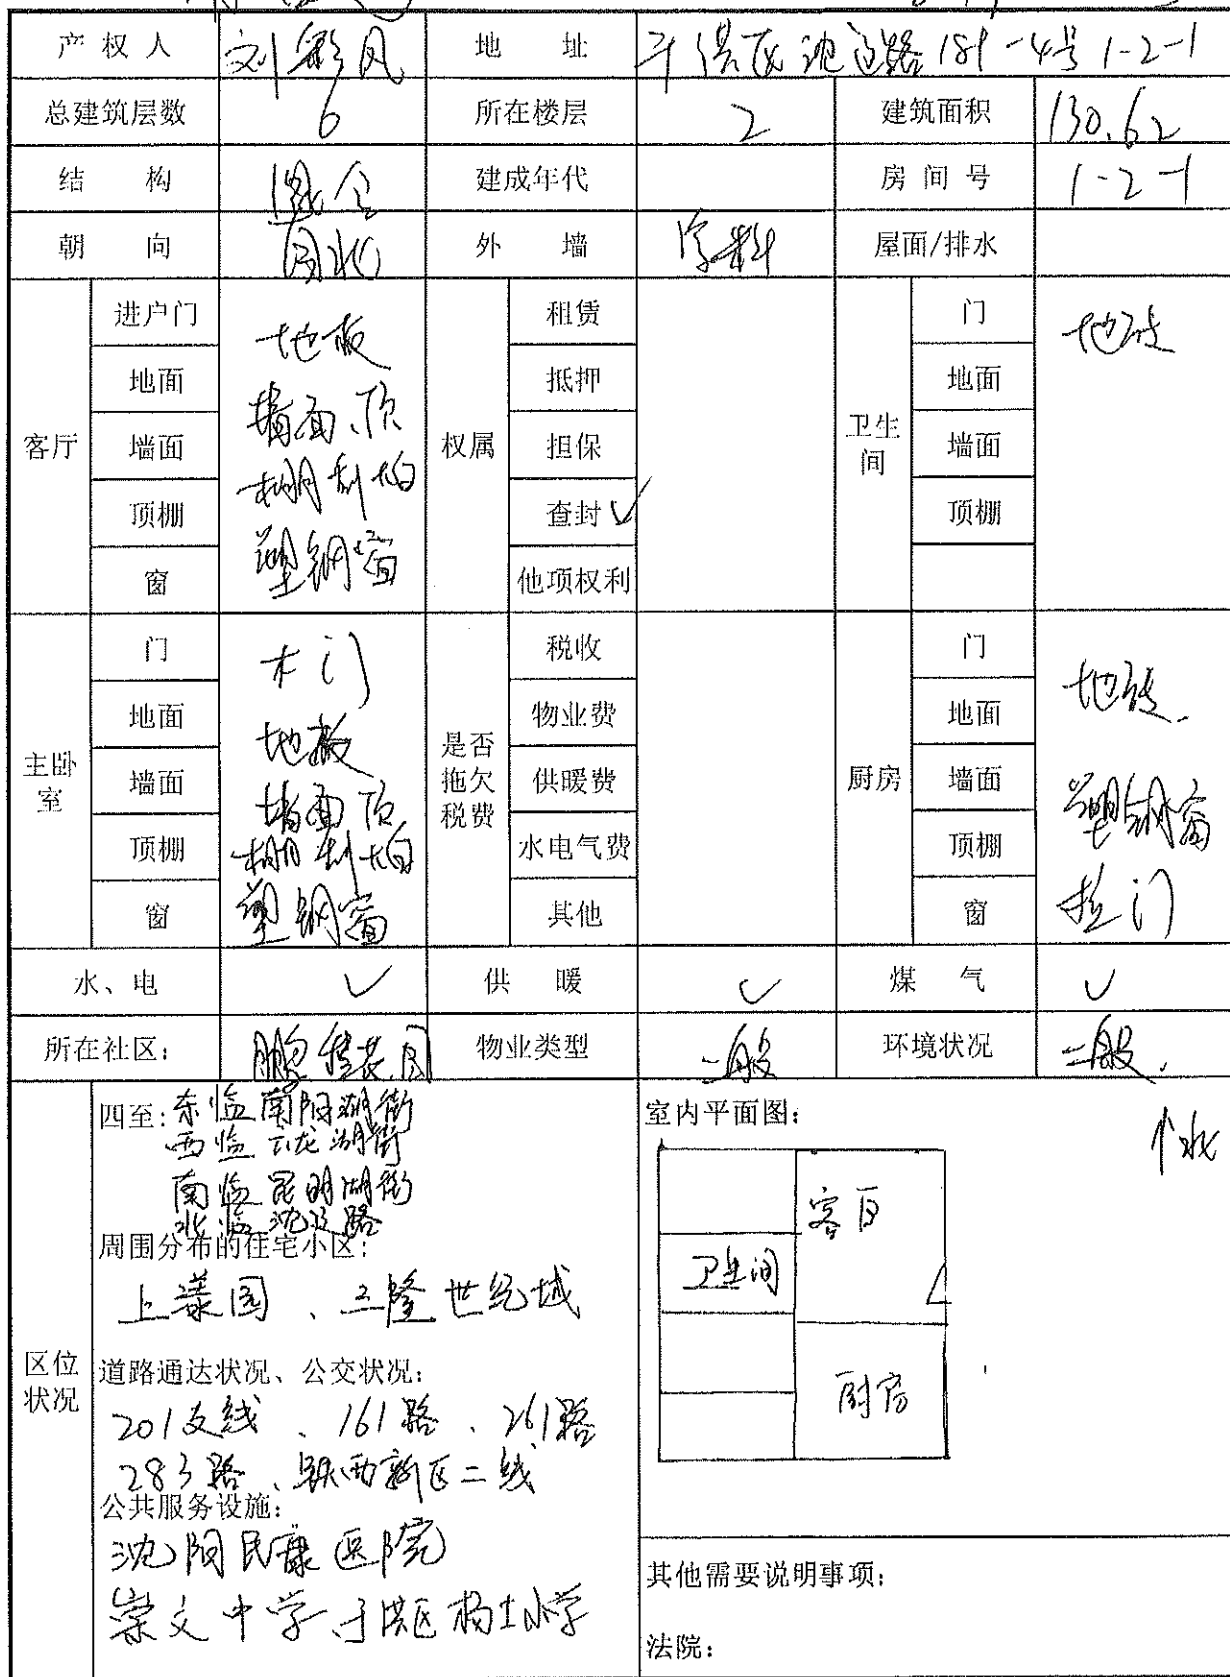 产权人 刘彩凤 地址 于洪区沈辽路181-4号1-2-1
总建筑层数 6 所在楼层 2 建筑面积 130.62
结构 混合 建成年代 房间号 1-2-1
朝向 南北 外墙 涂料 屋面/排水
客厅
进户门
地面
墙面
顶棚
窗
地板
墙面、顶
棚刮大白
塑钢窗
权属
租赁
抵押
担保
查封 ✓
他项权利
卫生间
门
地面
墙面
顶棚
地砖
主卧室
门
地面
墙面
顶棚
窗
木门
地板
墙面顶
棚刮大白
塑钢窗
是否拖欠税费
税收
物业费
供暖费
水电气费
其他
厨房
门
地面
墙面
顶棚
窗
地砖.
塑钢窗
拉门
水、电 ✓ 供暖 ✓ 煤气 ✓
所在社区: 物业类型 一般 环境状况 一般.
区位状况
四至: 东临南阳湖街
西临 龙湖街
南临昆明湖街
北临沈辽路
周围分布的住宅小区:
上 园、三隆世纪城
道路通达状况、公交状况:
201支线、161路、261路
283路、铁西新区二线
公共服务设施:
沈阳民康医院
崇文中学、于洪区杨士小学
室内平面图:
个北
客厅
卫生间
厨房
其他需要说明事项:
法院: